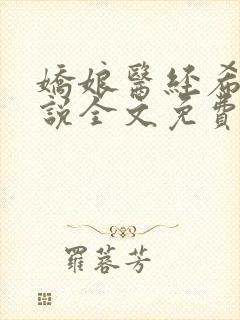 嬌娘醫經希
說全文免費
羅蓉芳